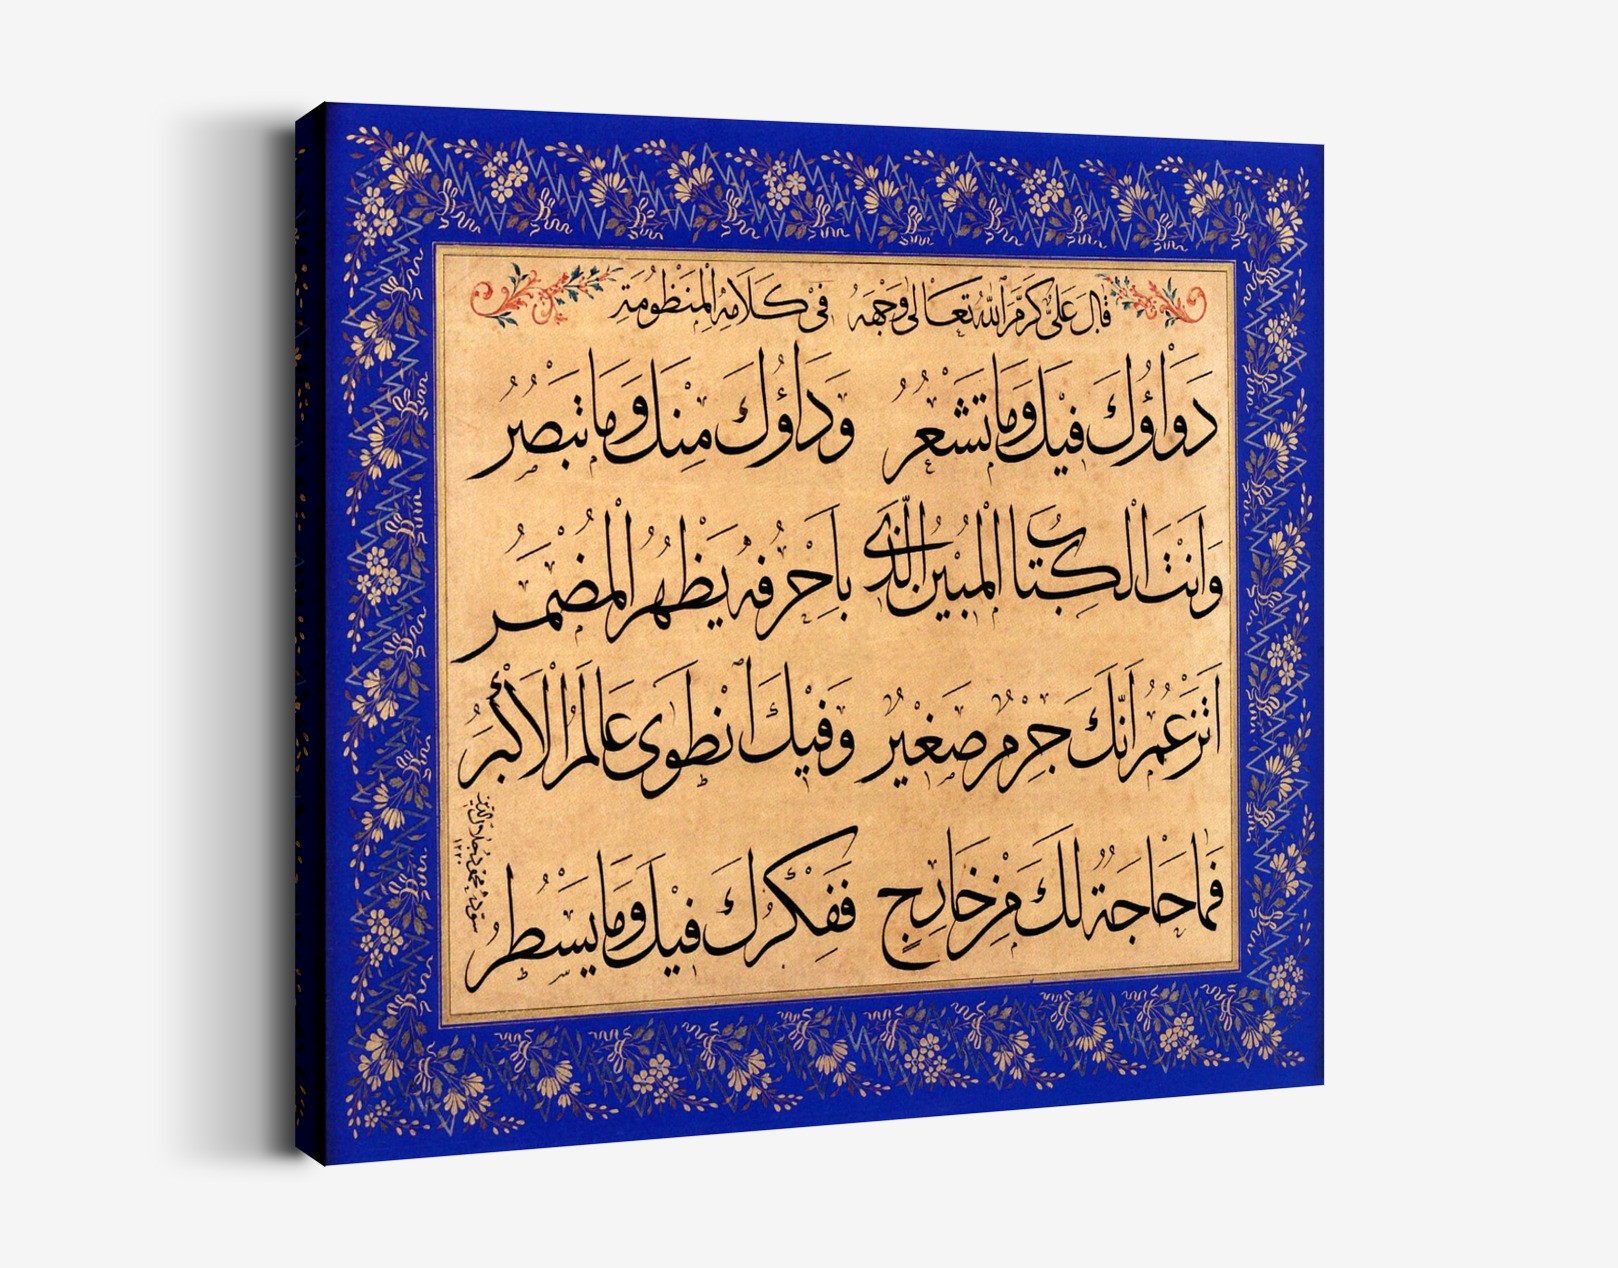 قَالَ عَلِىٌّ كَرَّمَ اللّٰهُ تَعَالٰى وَجْهَهُ فِى كَلَامِهِ الْمَنْظُومَةِ
دَوَاؤُكَ فِيكَ وَمَا تَشْعُرُ وَدَاؤُكَ مِنْكَ وَمَا تَبْصُرُ
وَاَنْتَ الْكِتَابُ الْمُبِينُ الَّذِى بِاَحْرُفِهِ يَظْهَرُ الْمُضْمَرُ
اَتَزْعُمُ اَنَّكَ جِرْمٌ صَغِيرٌ وَفِيكَ انْطَوَى عَالَمُ الْاَكْبَرُ
فَمَا حَاجَةٌ لَكَ مِنْ خَارِجٍ فَفِكْرُكَ فِيكَ وَمَا يَسْطُرُ
سوّده محمود جلال الدين